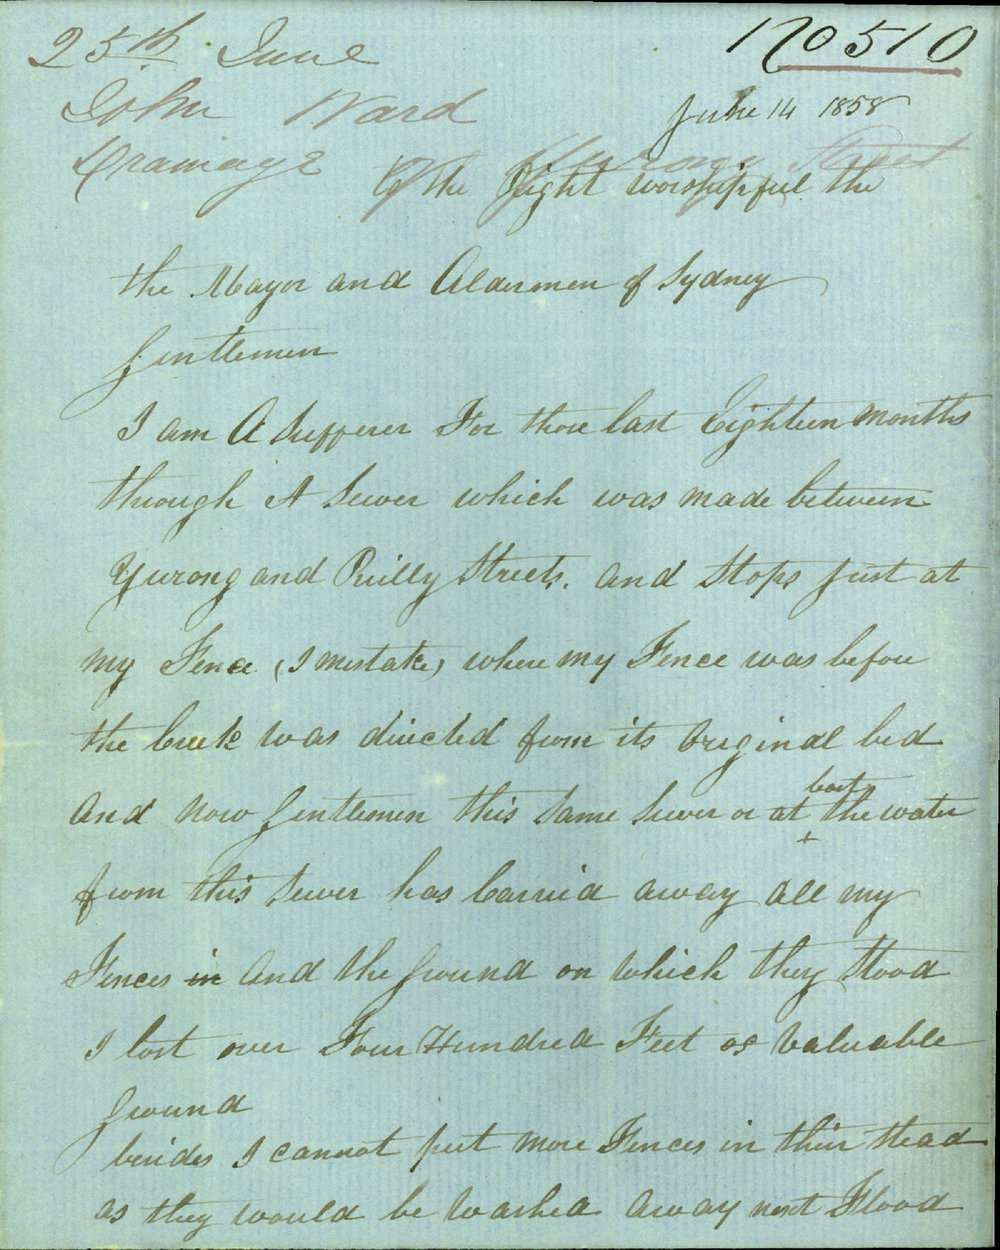 25th June
170510
John Ward
June 14 1858
Drainage Yurong Street
To the Right worshipful the
the Mayor and Aldermen of Sydney
Gentlemen
I am A Sufferer For those last Eighteen Months
through A Sewer which was made between
Yurong and Reilly Streets. and Stops just at
my Fence (I mistake) where my Fence was before
the Creek was directed from its Original bed
And Now Gentlemen this Same Sewer or at least the water
from this Sewer has Carried away all my
Fences in And the Ground on which they Stood
I lost over Four Hundred Feet of Valuable
Ground
besides I cannot put more Fences in their Stead
as they would be Washed away next Flood